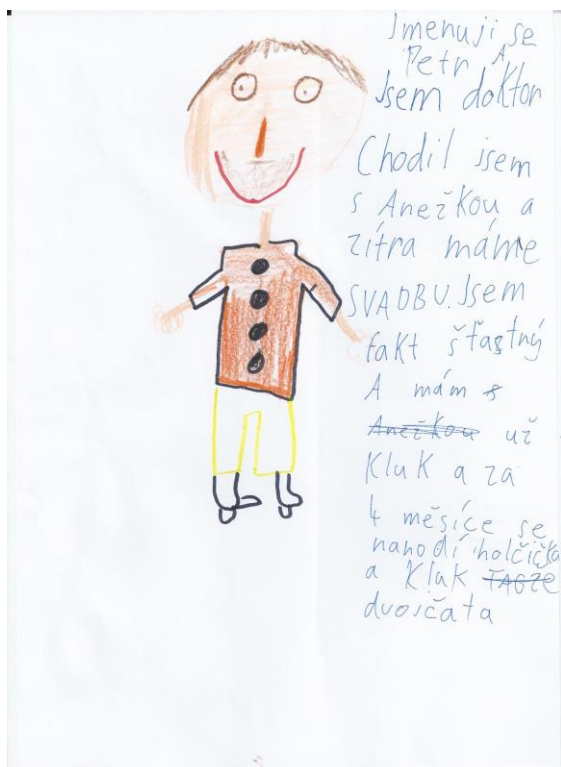 Jmenuji se
Petr A
Jsem doktor
Chodil jsem
s Anežkou a
zítra máme
SVADBU. Jsem
fakt šťastný
A mám s
Anežkou už
Kluk a za
4 měsíce se
narodí holčička
a Kluk
dvojčata